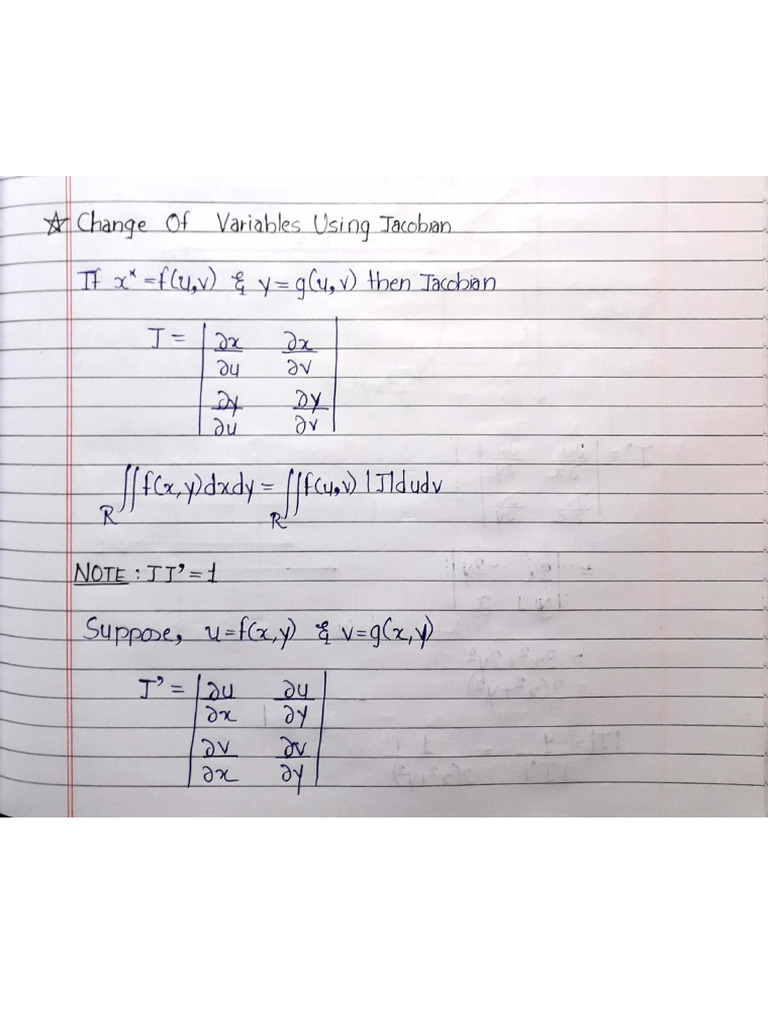 ☆ Change Of Variables Using Jacobian
If x* = f(u,v) & y = g(u,v) then Jacobian
J = | ∂x/∂u ∂x/∂v |
| ∂y/∂u ∂y/∂v |
∬R f(x,y)dxdy = ∬R f(u,v) |J|dudv
NOTE : JJ' = 1
Suppose, u=f(x,y) & v=g(x,y)
J' = | ∂u/∂x ∂u/∂y |
| ∂v/∂x ∂v/∂y |